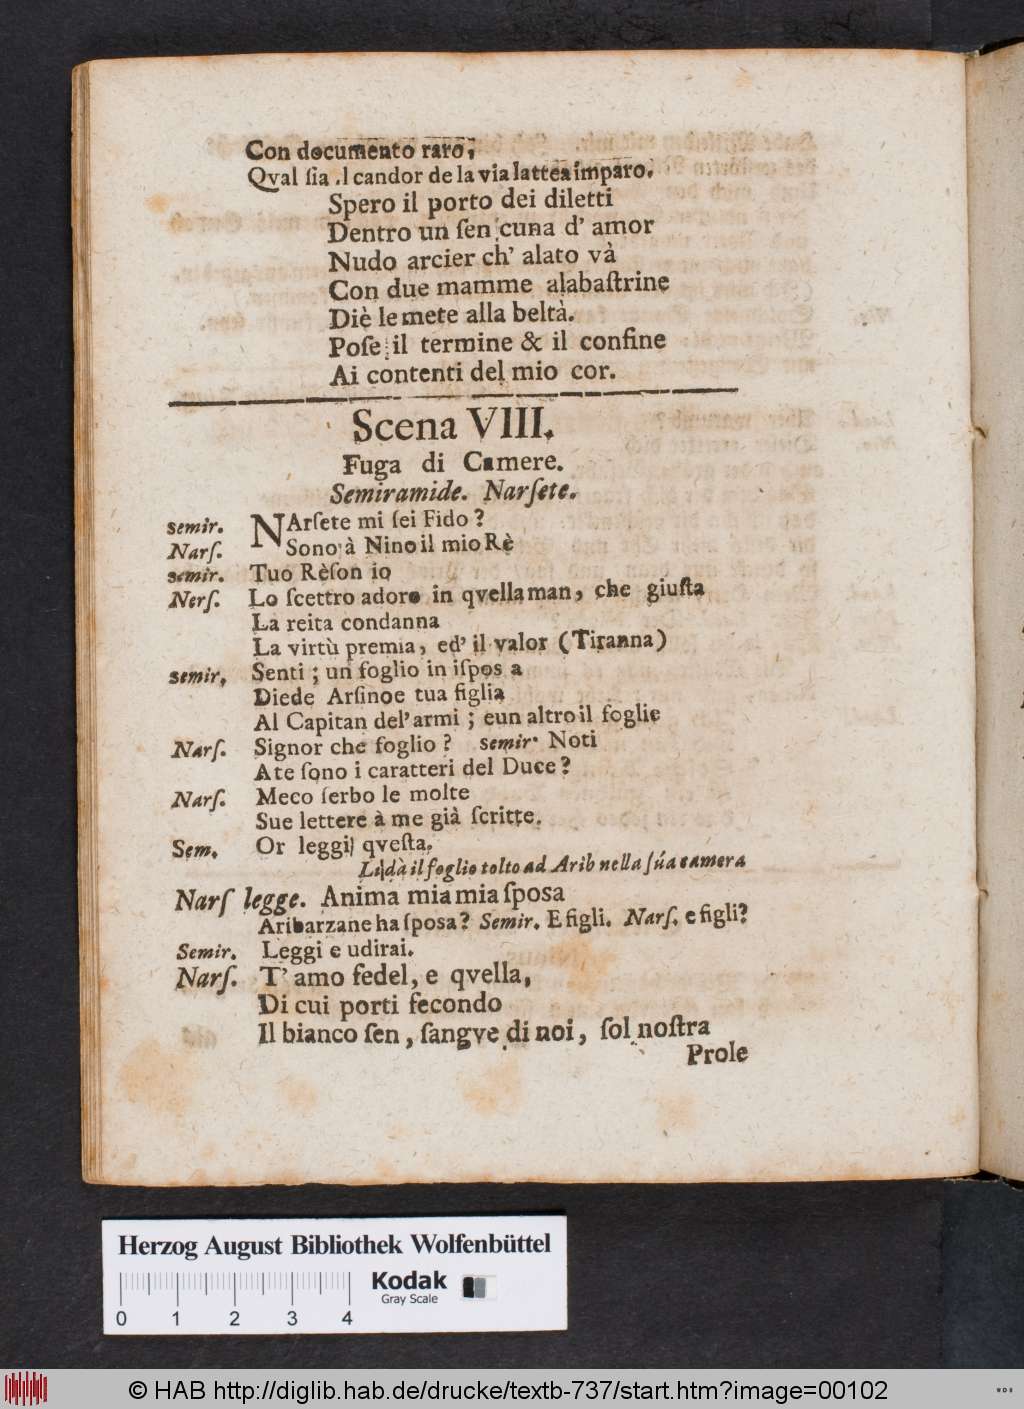 Con documento raro,
Qval ſia il candor de la via lattea imparo.
Spero il porto dei diletti
Dentro un ſen cuna d' amor
Nudo arcier ch' alato và
Con due mamme alabaſtrine
Diè le mete alla beltà.
Poſe il termine & il confine
Ai contenti del mio cor.
Scena VIII.
Fuga di Camere.
Semiramide. Narſete.
semir. NArſete mi ſei Fido?
Narſ. Sono à Nino il mio Rè
semir. Tuo Rèſon io
Nerſ. Lo ſcettro adoro in qvella man, che giuſta
La reita condanna
La virtù premia, ed' il valor (Tiranna)
semir, Senti; un foglio in iſpos a
Diede Arſinoe tua figlia
Al Capitan del' armi; eun altro il foglie
Narſ. Signor che foglio? semir. Noti
A te ſono i caratteri del Duce?
Narſ. Meco ſerbo le molte
Sue lettere à me già ſcritte.
Sem. Or leggi qveſta.
Li dà il foglio tolto ad Arib nella ſúa camera
Narſ legge. Anima mia mia ſposa
Aribarzane ha ſposa? Semir. E figli. Narſ. e figli?
Semir. Leggi e udirai.
Narſ. T' amo fedel, e qvella,
Di cui porti fecondo
Il bianco ſen, ſangve di noi, ſol noſtra
Prole
Herzog August Bibliothek Wolfenbüttel
Kodak
Gray Scale
0 1 2 3 4
© HAB http://diglib.hab.de/drucke/textb-737/start.htm?image=00102